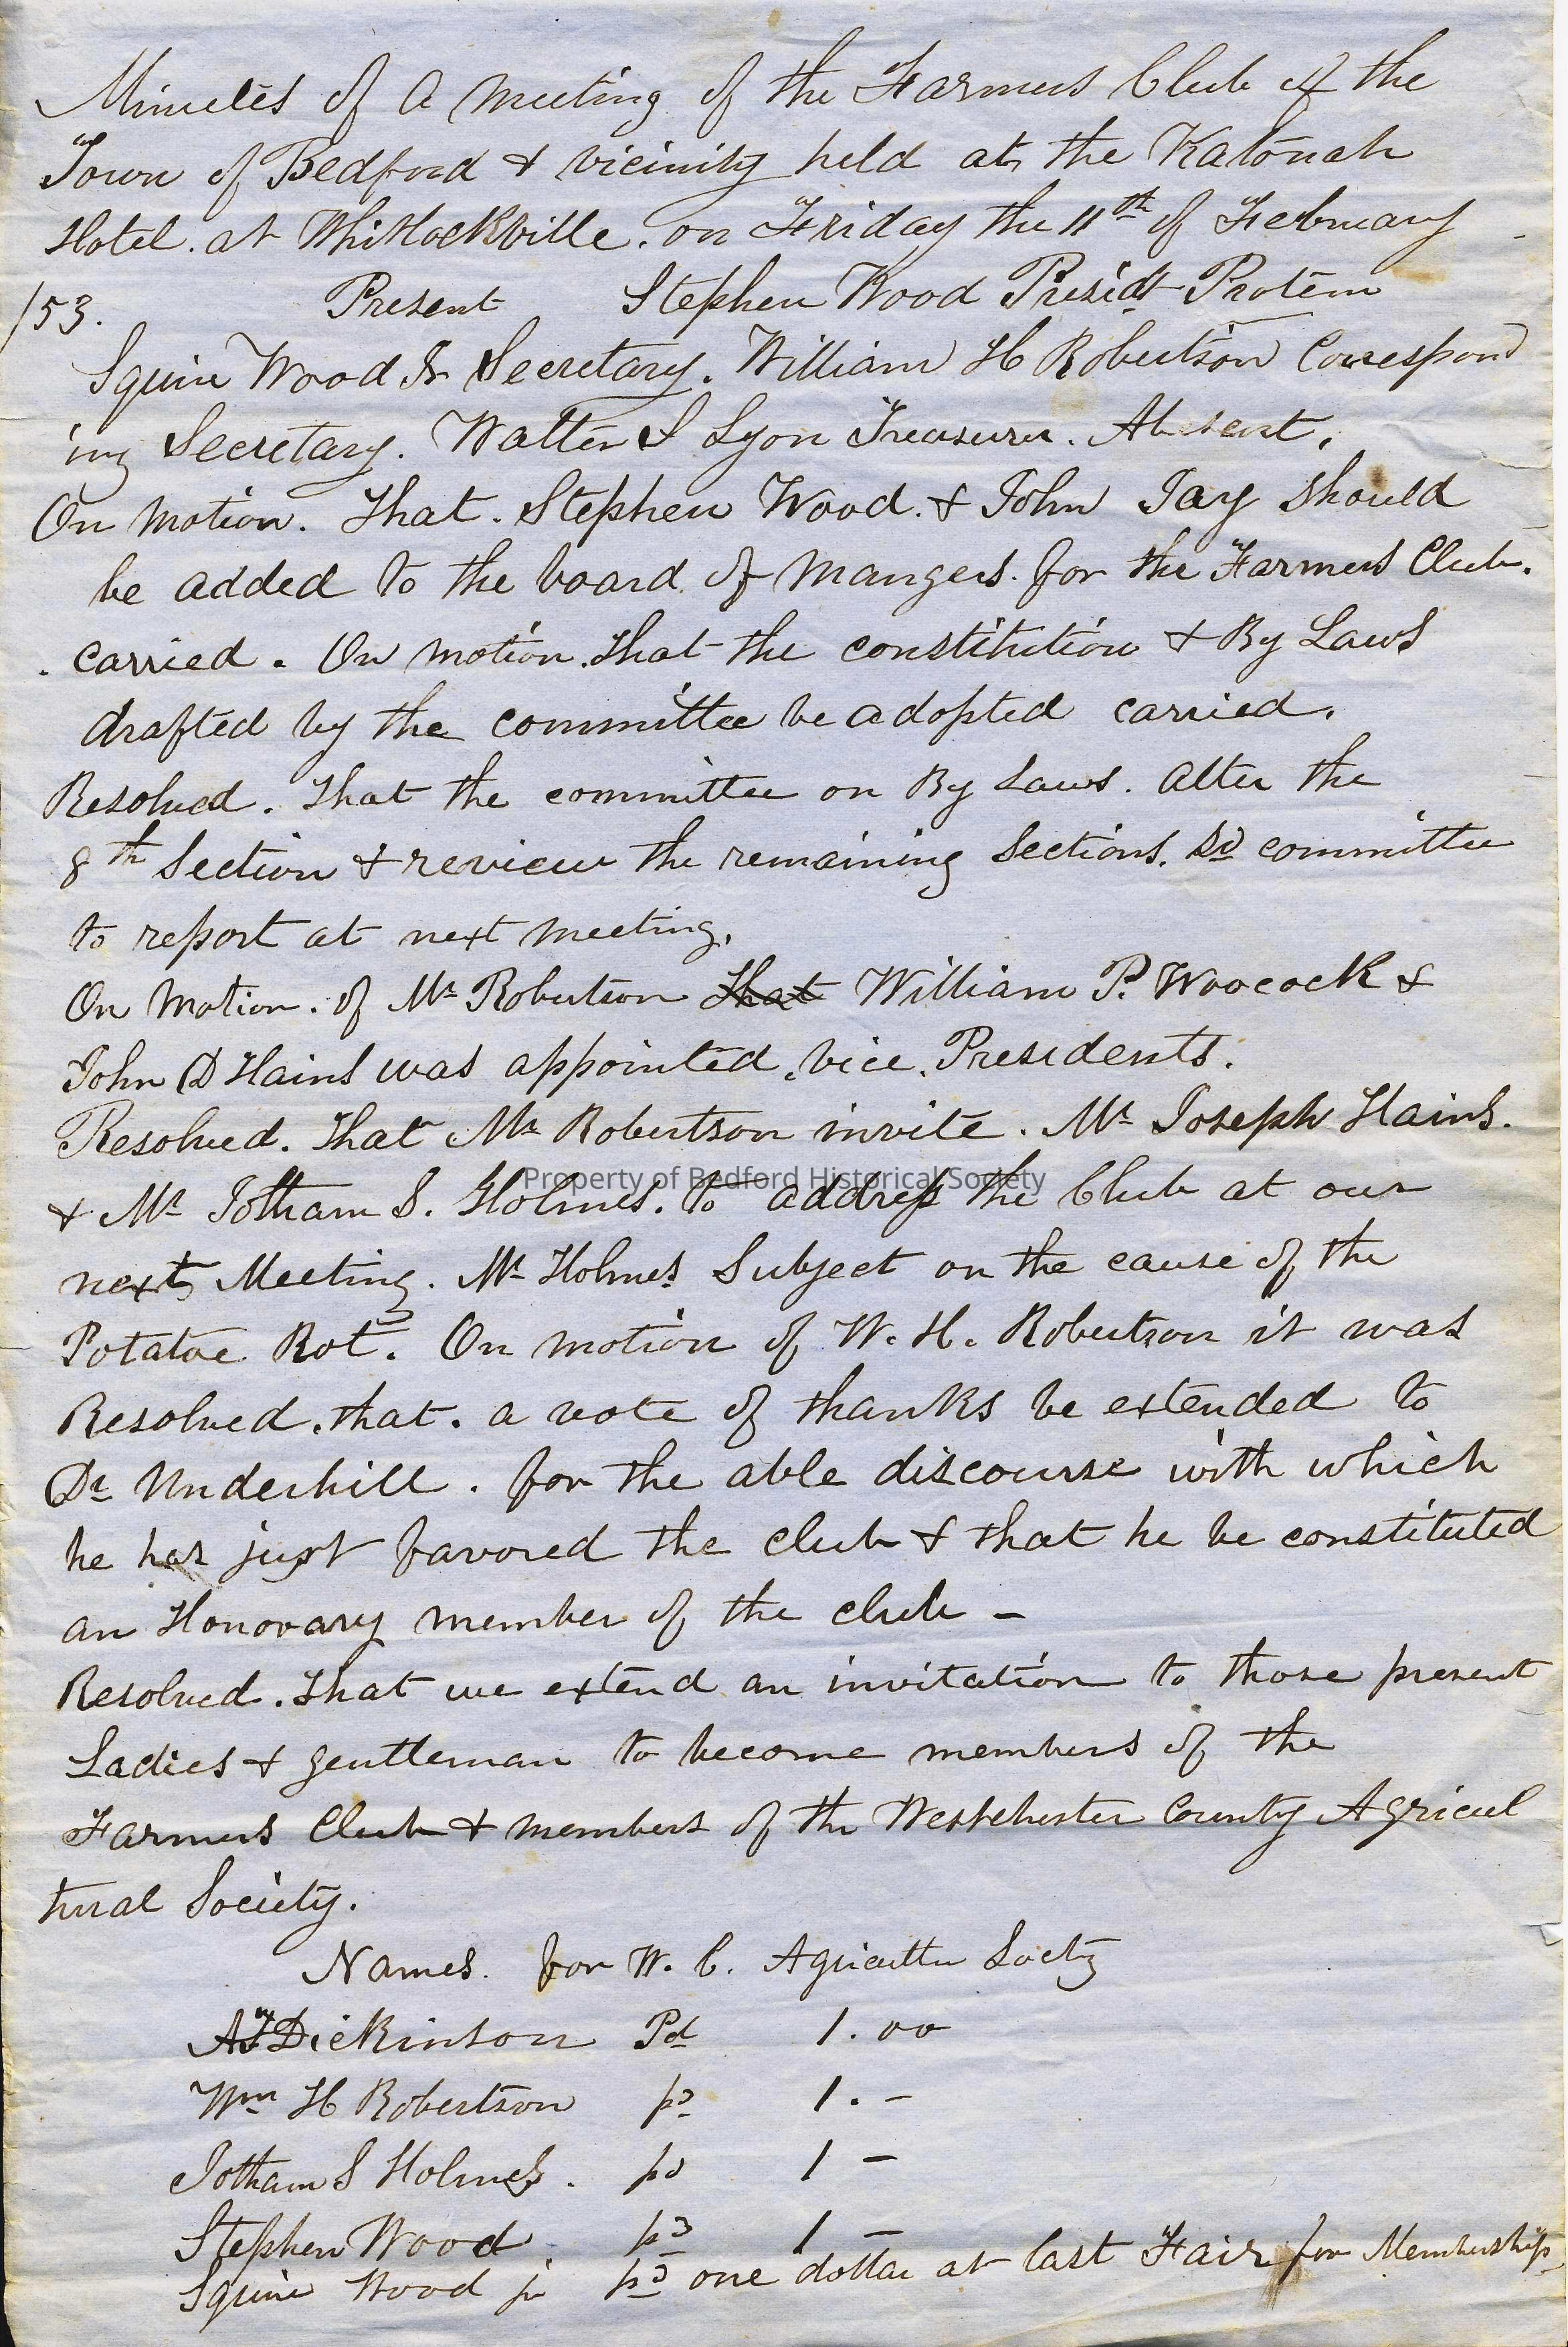 Minutes of A Meeting of the Farmers Club of the
Town of Bedford & vicinity held at the Katonah
Hotel. at Whitlockville. on Friday the 11th of February
/53. Present Stephen Wood Presidt Protem
Squire Wood Jr Secretary. William H Robertson Correspond
ing Secretary. Walter S Lyon Treasurer. Absent.
On Motion. That. Stephen Wood. & John Jay should
be added to the board of Mangers. for the Farmers Club.
carried. On motion. that the constitution & By Laws
drafted by the committee be adopted carried.
Resolved. that the committee on By Laws. alter the
8th Section & review the remaining Sections. Sd committee
to report at next Meeting.
On Motion. of Mr Robertson That William P. Woocock &
John D Hains was appointed. vice. Presidents.
Resolved. That Mr Robertson invite. Mr Joseph Hains.
Property of Bedford Historical Society
& Mr Jotham S. Holmes. to address the Club at our
next Meeting. Mr Holmes Subject on the cause of the
Potatoe Rot. On motion of W. H. Robertson it was
Resolved. that. a vote of thanks be extended to
Dr Underhill. for the able discourse with which
he has just favored the club & that he be constituted
an Honorary member of the club –
Resolved. that we extend an invitation to those present
Ladies & gentleman to become members of the
Farmers Club & members of the Westchester County Agricul
tural Society.
Names. for W. C. Agricultu Socty
Dickinson Pd 1.00
Wm H Robertson pd 1. –
Jotham S Holmes. pd 1 –
Stephen Wood pd 1 –
Squire Wood jr pd one dollar at last Fair for Membership